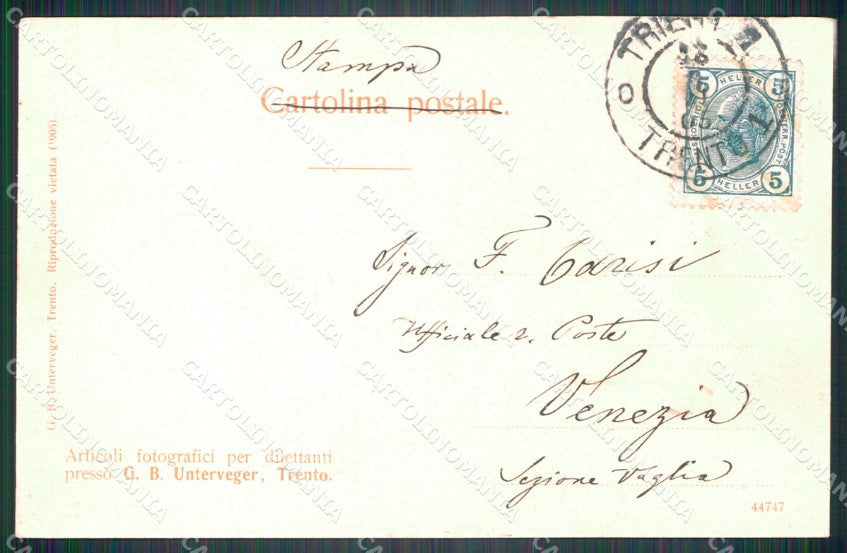 Stampa
Cartolina postale.
TRIENT 1
TRENTO 1
5 HELLER 5
5 HELLER 5
Signor F. Carisi
Ufficiale r. Poste
Venezia
Sezione Vaglia
G. B. Unterveger, Trento. Riproduzione vietata (1905).
Articoli fotografici per dilettanti
presso G. B. Unterveger, Trento.
44747
CARTOLINOMANIA